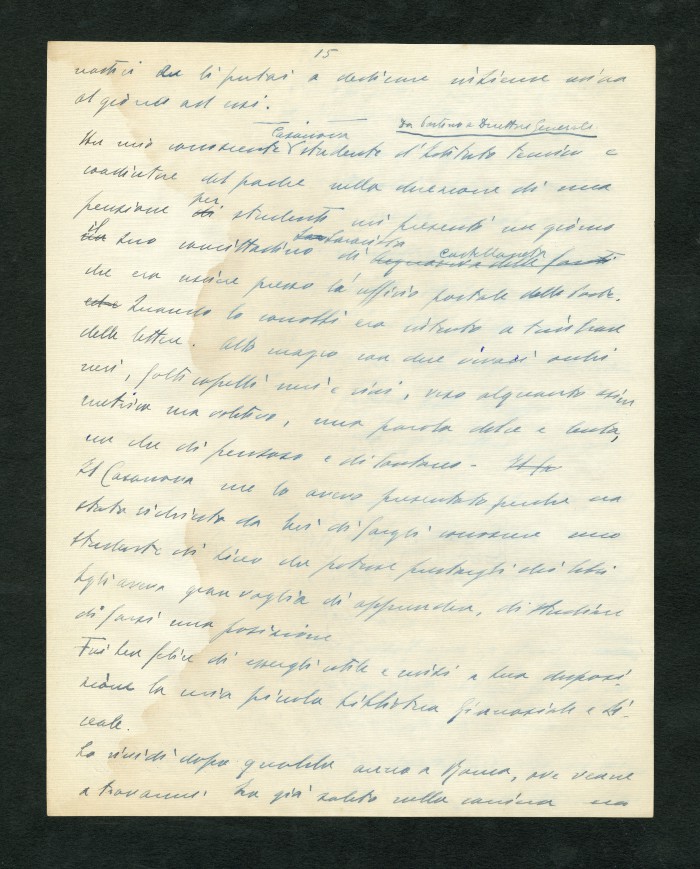 15
nostri che li portai a dedicare
al giorno ad essi.
Da Postino a Direttore Generale
Casanova
Un mio conoscente studente d'Istituto tecnico e
coadiutore del padre nella direzione di una
per
pensione di studenti mi presentò un giorno
il suo concittadino di
castellaneta
che era usciere presso l'ufficio postale delle Poste.
Quando lo conobbi era intento a timbrare
delle lettere. Alto magro con due vivaci occhi
neri, folti capelli neri e ricci, viso alquanto asim
metrico ma volitivo, una parola dolce e lenta,
un che di pensoso e di lontano. -
Il Casanova me lo aveva presentato perché era
stato richiesto da lui di fargli conoscere uno
studente di liceo che potesse prestargli dei libri
Egli aveva gran voglia di apprendere, di studiare
di farsi una posizione
Fui ben felice di essergli utile e misi a sua disposi-
zione la mia piccola biblioteca Ginnasiale e Li-
ceale.
Lo rividi dopo qualche anno a Roma, ove venne
a trovarmi. Era già salito nella carriera